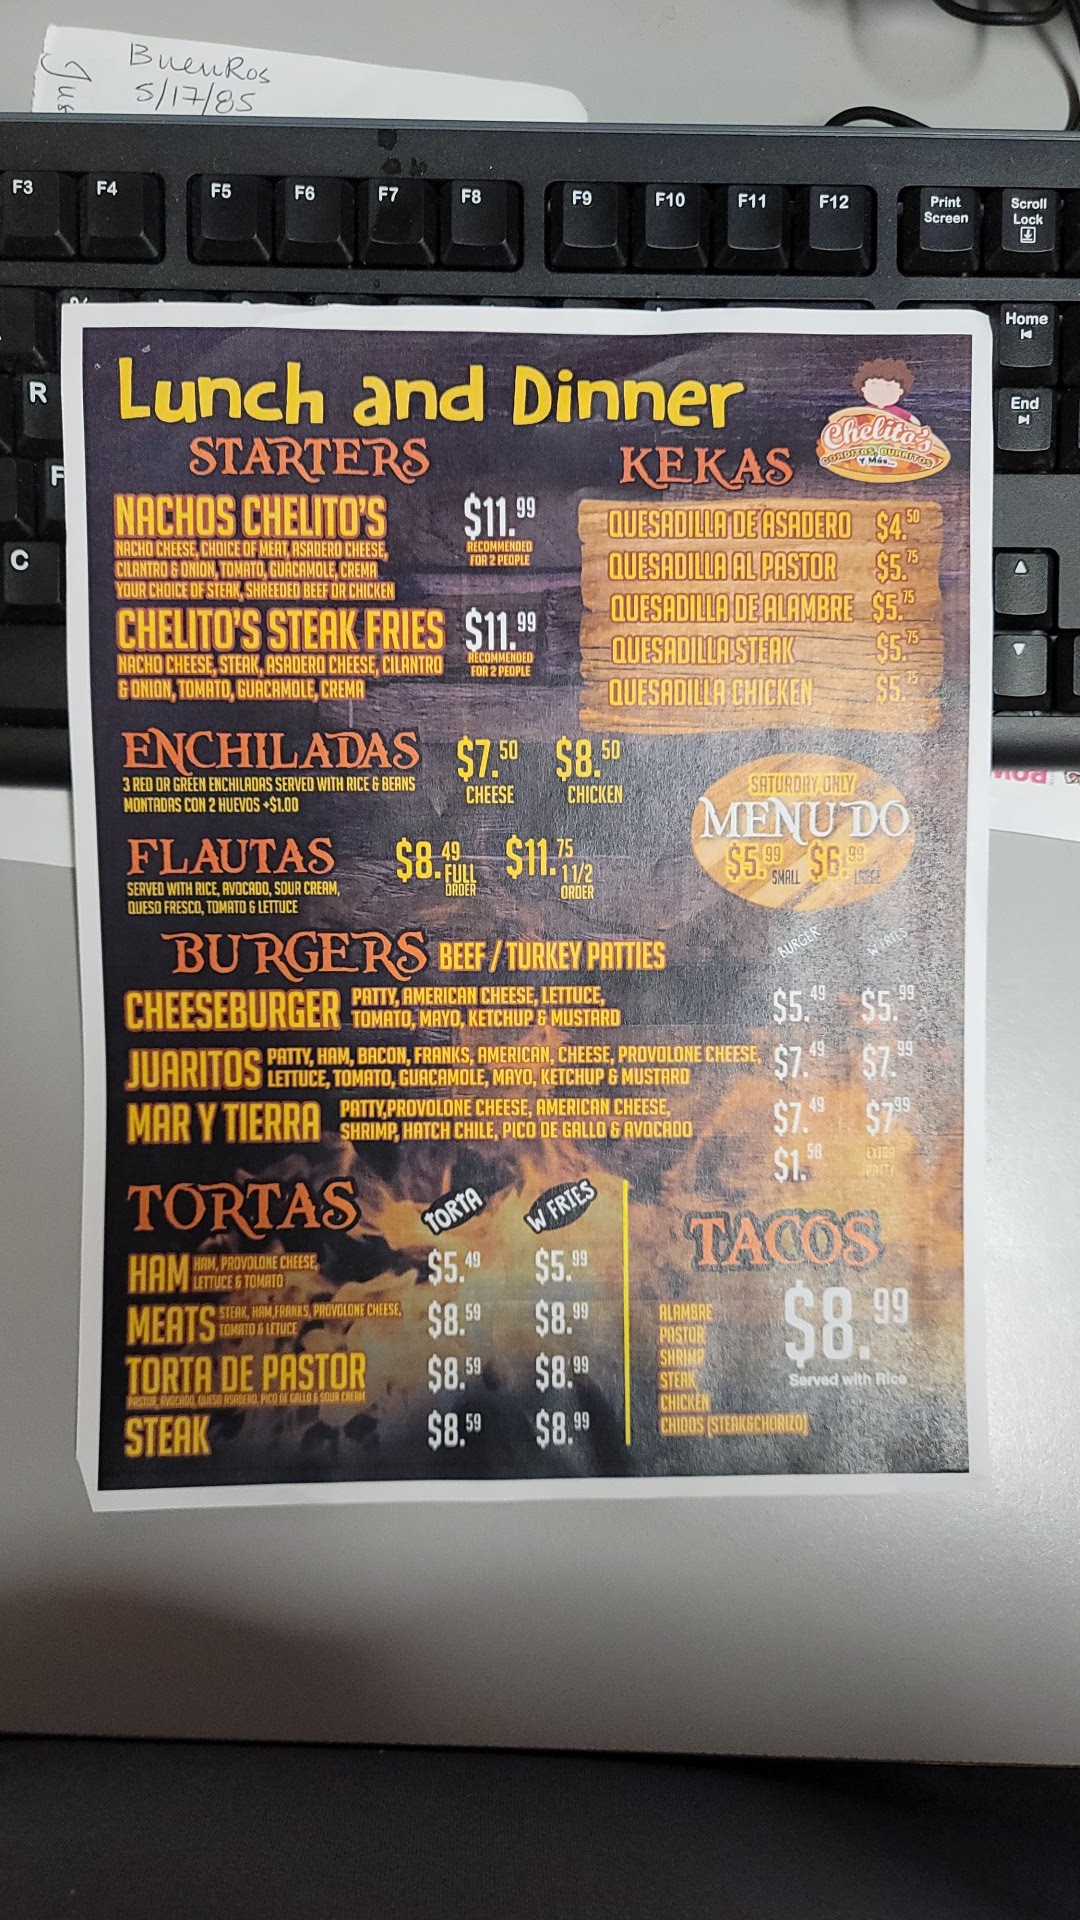 BuenRos
5/17/85
Jus
F3 F4 F5 F6 F7 F8 F9 F10 F11 F12 Print Screen Scroll Lock
Home
R
End
F
C
Lunch and Dinner
Chelito's
GORDITAS, BURRITOS
Y Más...
STARTERS
NACHOS CHELITO'S $11.99
NACHO CHEESE, CHOICE OF MEAT, ASADERO CHEESE,
CILANTRO & ONION, TOMATO, GUACAMOLE, CREMA
YOUR CHOICE OF STEAK, SHREEDED BEEF OR CHICKEN
RECOMMENDED
FOR 2 PEOPLE
CHELITO'S STEAK FRIES $11.99
NACHO CHEESE, STEAK, ASADERO CHEESE, CILANTRO
& ONION, TOMATO, GUACAMOLE, CREMA
RECOMMENDED
FOR 2 PEOPLE
KEKAS
QUESADILLA DE ASADERO $4.50
QUESADILLA AL PASTOR $5.75
QUESADILLA DE ALAMBRE $5.75
QUESADILLA STEAK $5.75
QUESADILLA CHICKEN $5.75
ENCHILADAS $7.50 $8.50
CHEESE CHICKEN
3 RED OR GREEN ENCHILADAS SERVED WITH RICE & BEANS
MONTADAS CON 2 HUEVOS +$1.00
SATURDAY ONLY
MENUDO
$5.99 SMALL $6.99 LARGE
FLAUTAS $8.49 FULL ORDER $11.75 1 1/2 ORDER
SERVED WITH RICE, AVOCADO, SOUR CREAM,
QUESO FRESCO, TOMATO & LETTUCE
BURGERS BEEF / TURKEY PATTIES BURGER W FRIES
CHEESEBURGER PATTY, AMERICAN CHEESE, LETTUCE, $5.49 $5.99
TOMATO, MAYO, KETCHUP & MUSTARD
JUARITOS PATTY, HAM, BACON, FRANKS, AMERICAN, CHEESE, PROVOLONE CHEESE, $7.49 $7.99
LETTUCE, TOMATO, GUACAMOLE, MAYO, KETCHUP & MUSTARD
MAR Y TIERRA PATTY,PROVOLONE CHEESE, AMERICAN CHEESE, $7.49 $7.99
SHRIMP, HATCH CHILE, PICO DE GALLO & AVOCADO
$1.50 EXTRA PATTY
TORTAS TORTA W FRIES
HAM HAM, PROVOLONE CHEESE, $5.49 $5.99
LETTUCE & TOMATO
MEATS STEAK, HAM,FRANKS, PROVOLONE CHEESE, $8.59 $8.99
TOMATO & LETUCE
TORTA DE PASTOR $8.59 $8.99
PASTOR, AVOCADO, QUESO ASADERO, PICO DE GALLO & SOUR CREAM
STEAK $8.59 $8.99
TACOS
$8.99
Served with Rice
ALAMBRE
PASTOR
SHRIMP
STEAK
CHICKEN
CHIDOS (STEAK&CHORIZO)